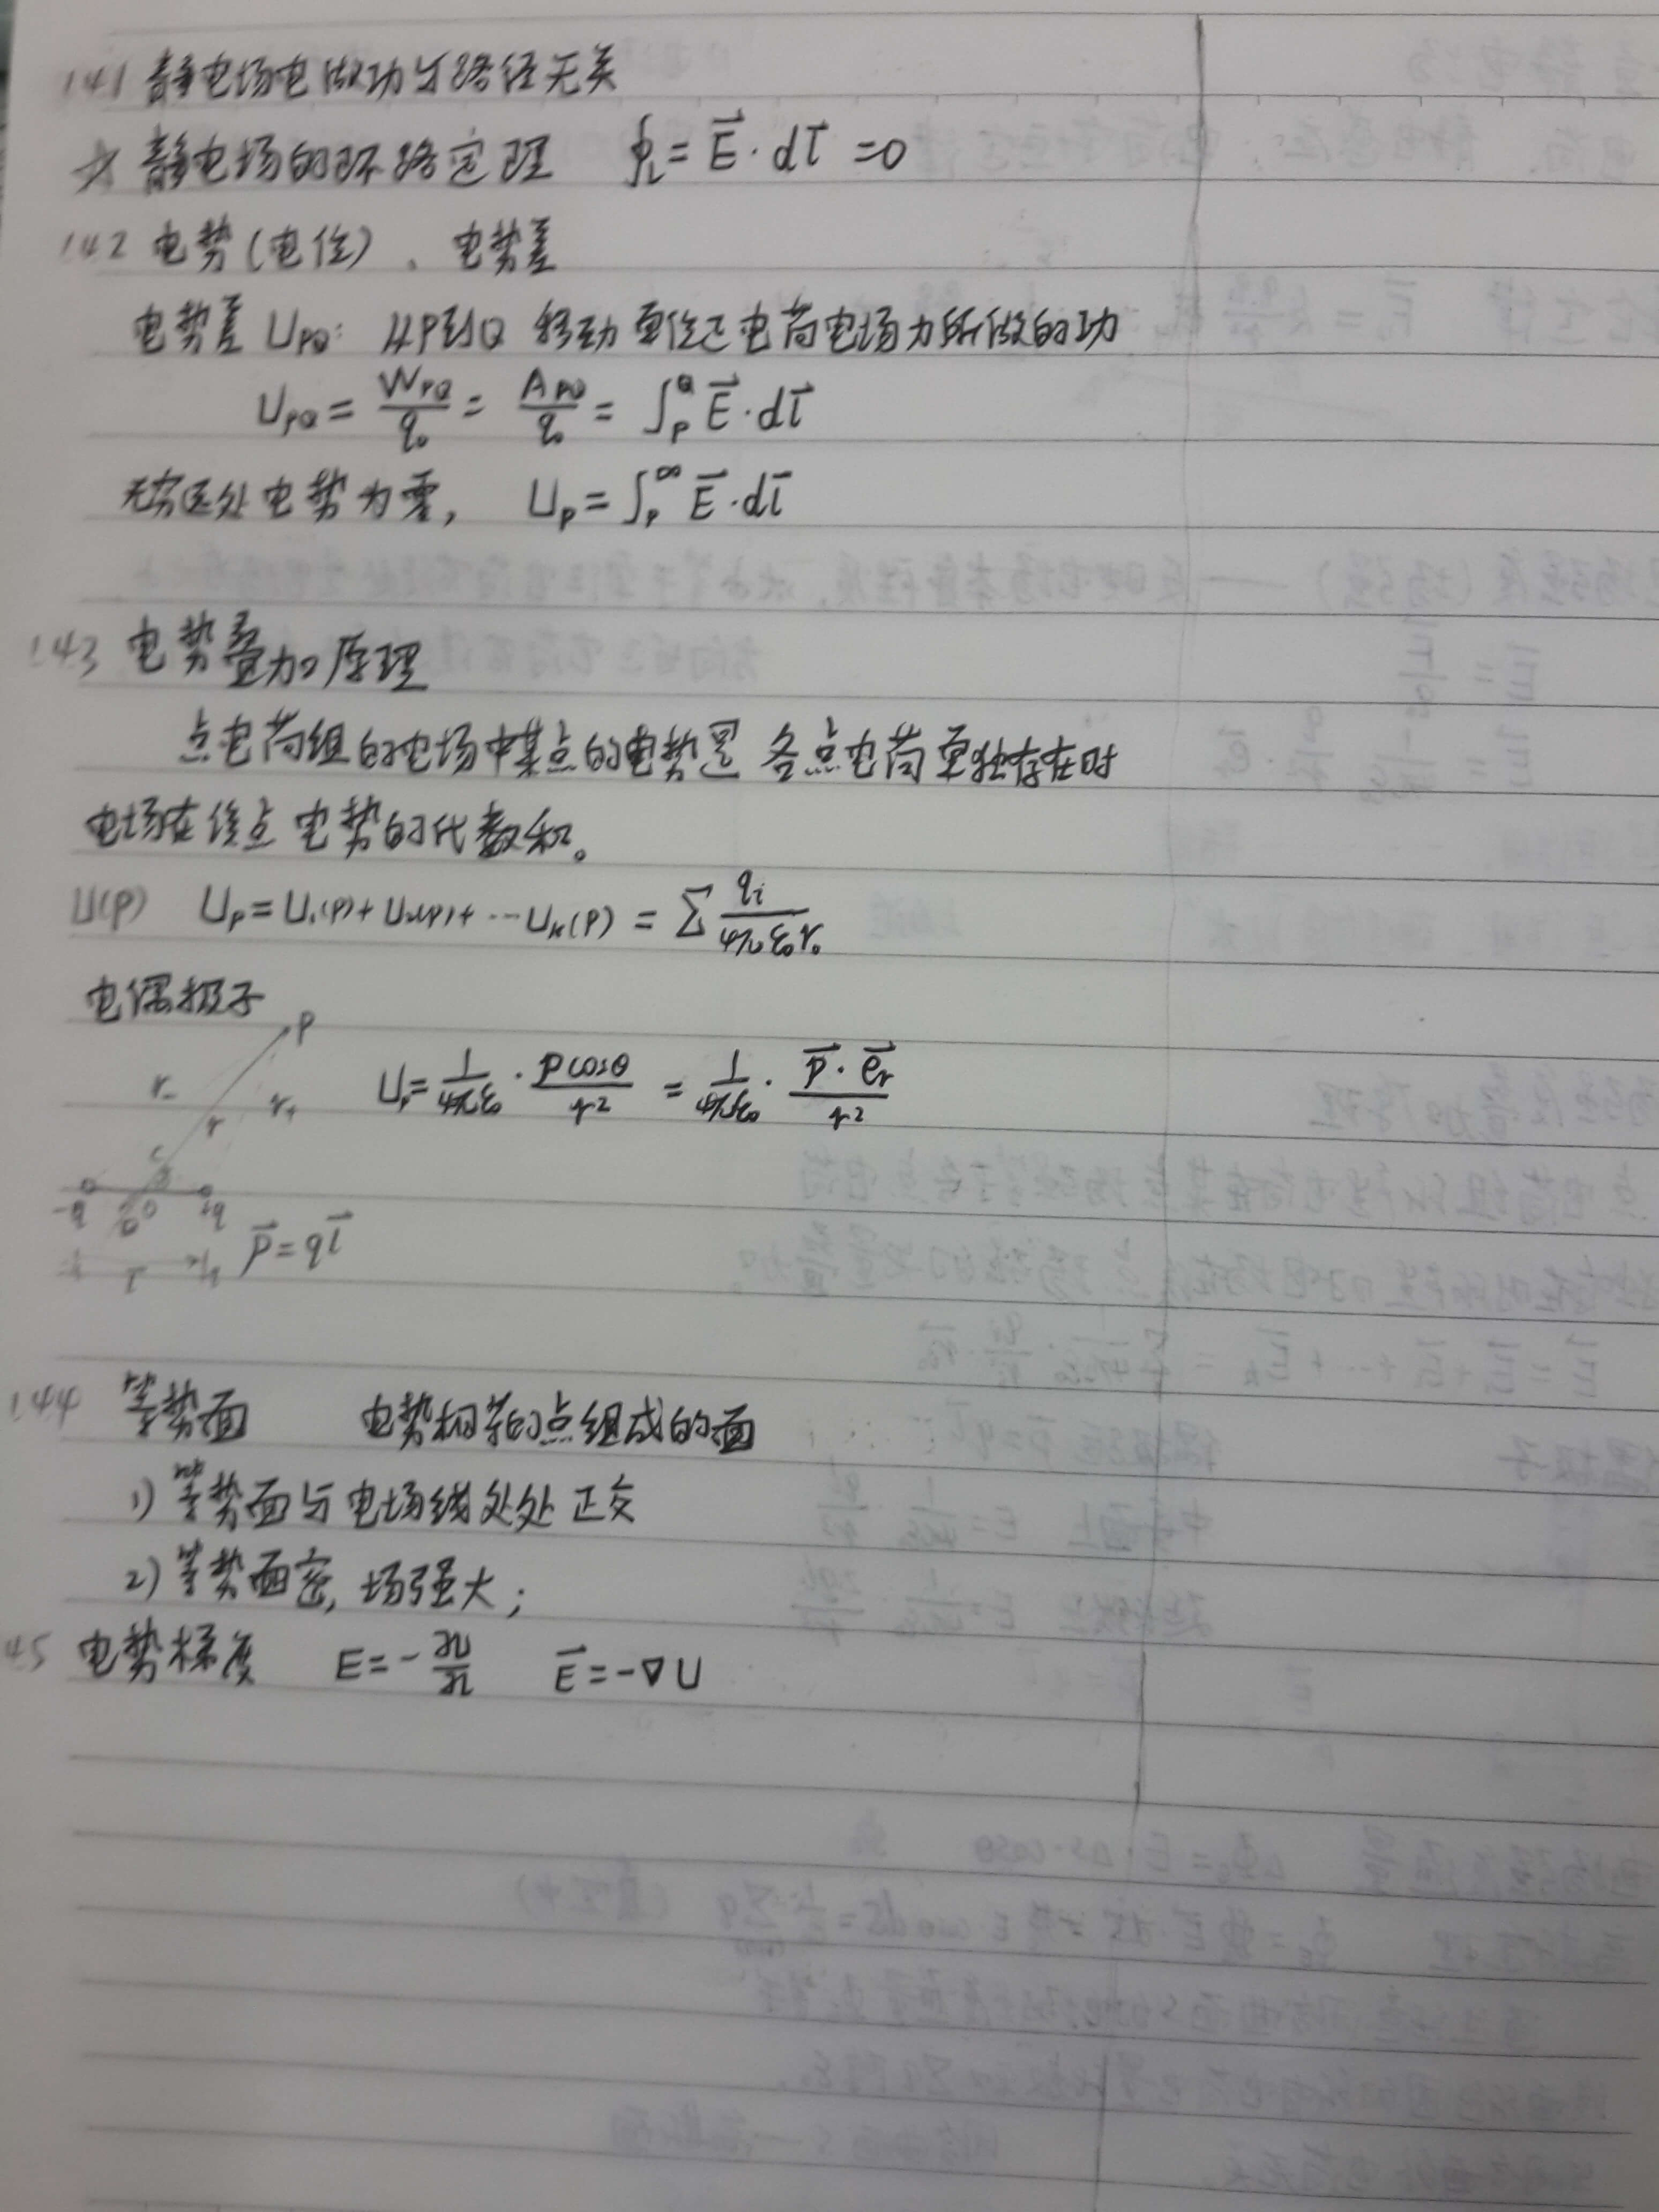 1.4.1 静电场电做功与路径无关
☆ 静电场的环路定理 ∮L = E⃗ · dl⃗ = 0
1.4.2 电势(电位)、电势差
电势差 UPQ: 从P到Q 移动单位正电荷电场力所做的功
UPQ = WPQ/q₀ = APQ/q₀ = ∫P^Q E⃗ · dl⃗
无穷远处电势为零, UP = ∫P^∞ E⃗ · dl⃗
1.4.3 电势叠加原理
点电荷组的电场中某点的电势是 各点电荷单独存在时
电场在该点电势的代数和。
U(P) UP = U₁(P) + U₂(P) + ⋯ Uk(P) = Σ qi/4πε₀r₀
电偶极子
P
r₋ r₊
r
UP = 1/4πε₀ · pcosθ/r² = 1/4πε₀ · p⃗ · e⃗r/r²
-q O +q
p⃗ = ql⃗
1.4.4 等势面 电势相等的点组成的面
1) 等势面与电场线处处正交
2) 等势面密, 场强大;
1.4.5 电势梯度 E = -∂U/∂n E⃗ = -∇U